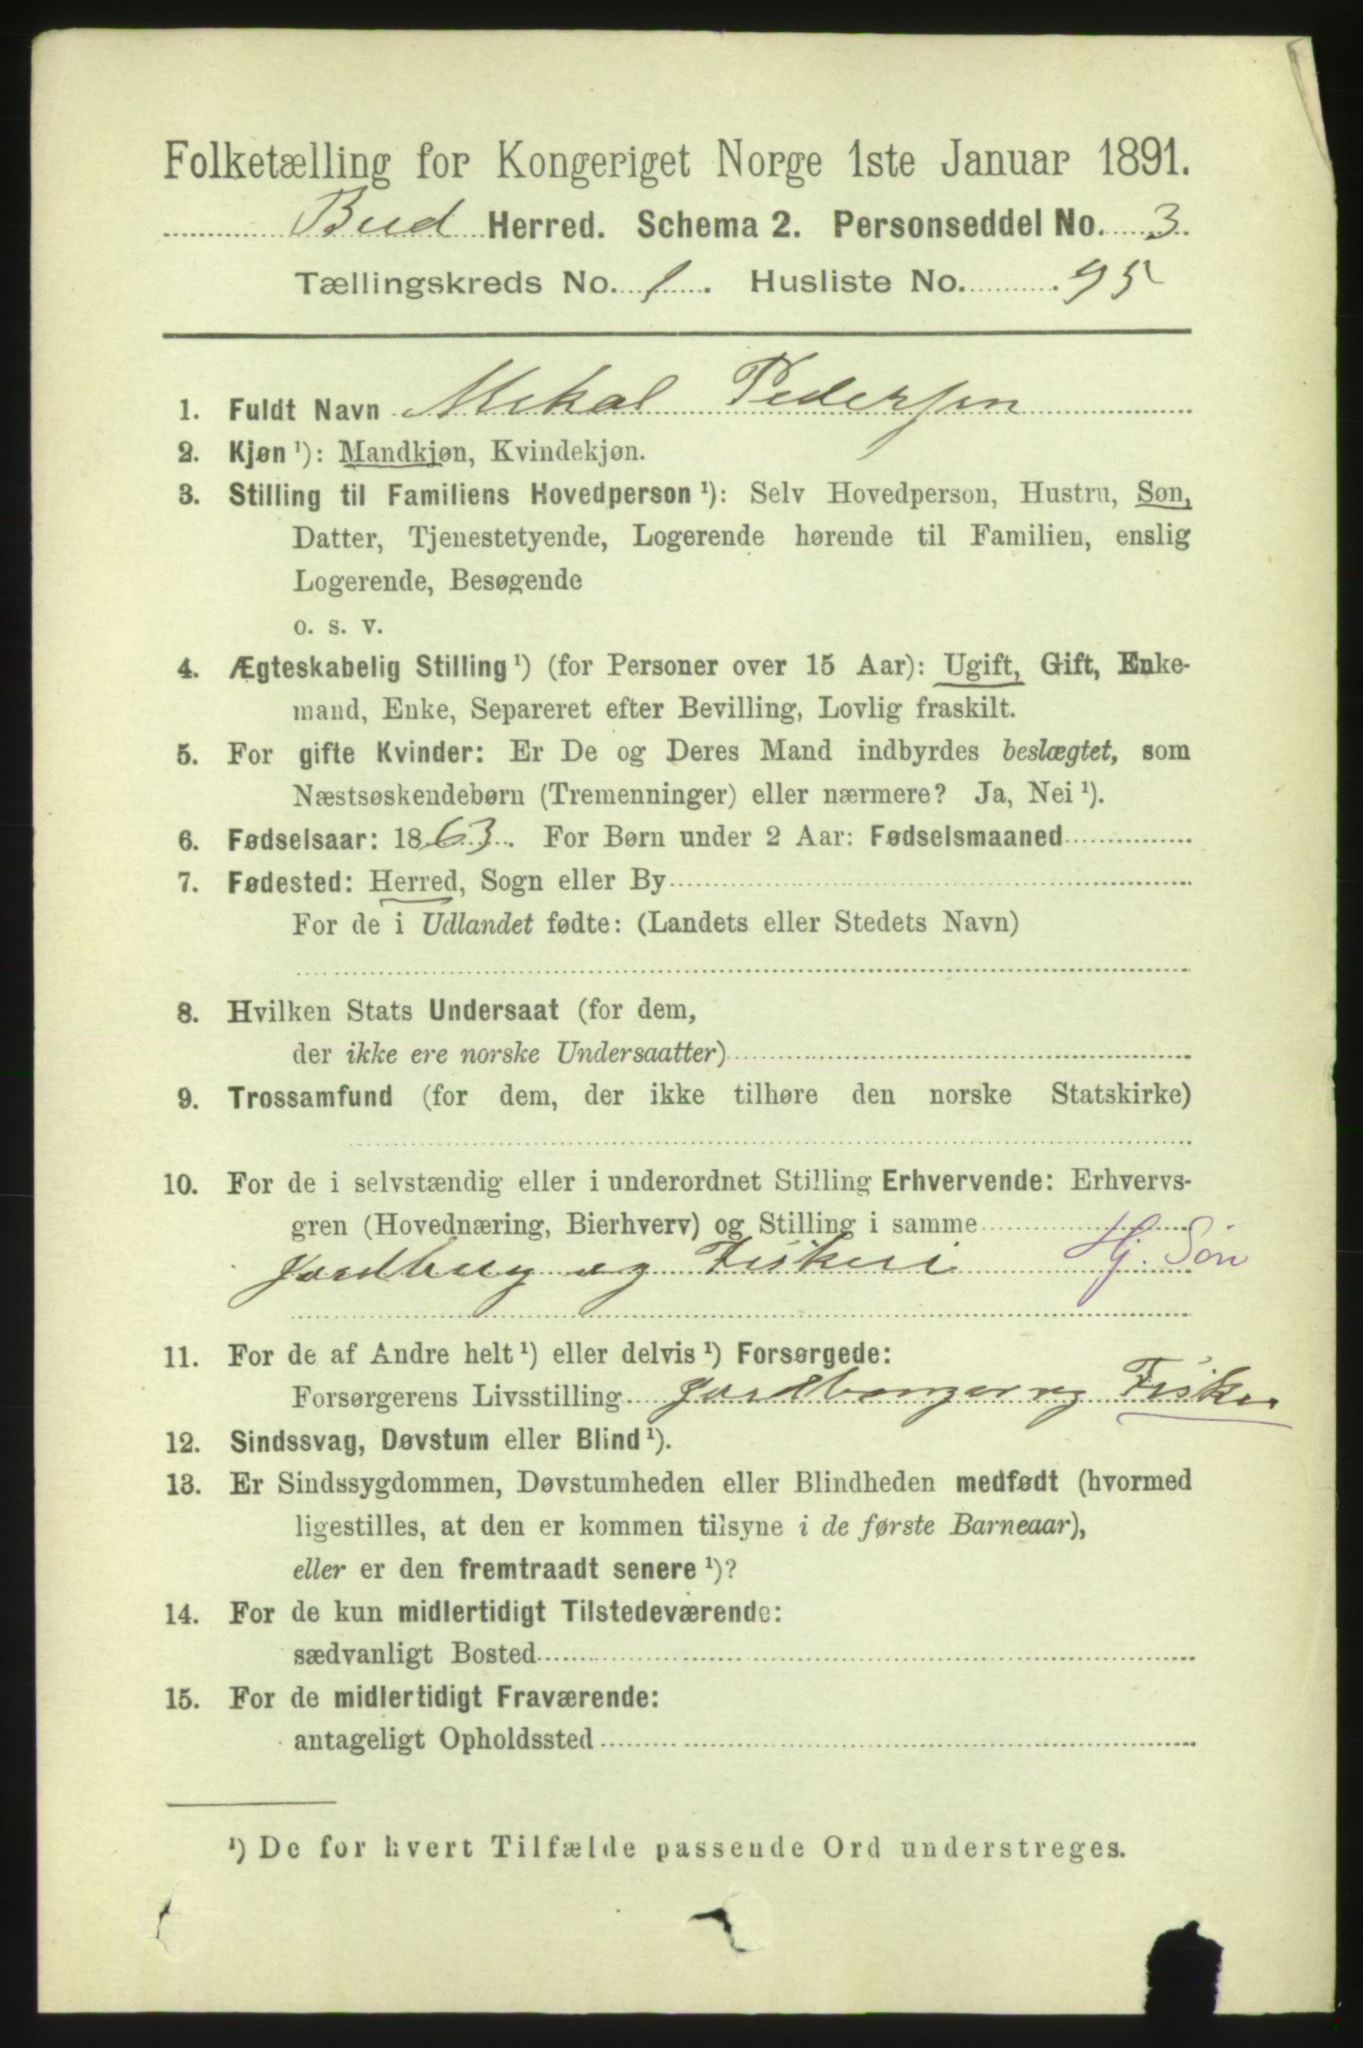 Folketælling for Kongeriget Norge 1ste Januar 1891.
Bud Herred. Schema 2. Personseddel No. 3.
Tællingskreds No. 1. Husliste No. 95
1. Fuldt Navn Mekal Pedersen
2. Kjøn ¹): Mandkjøn, Kvindekjøn.
3. Stilling til Familiens Hovedperson ¹): Selv Hovedperson, Hustru, Søn,
Datter, Tjenestetyende, Logerende hørende til Familien, enslig
Logerende, Besøgende
o. s. v.
4. Ægteskabelig Stilling ¹) (for Personer over 15 Aar): Ugift, Gift, Enke-
mand, Enke, Separeret efter Bevilling, Lovlig fraskilt.
5. For gifte Kvinder: Er De og Deres Mand indbyrdes beslægtet, som
Næstsøskendebørn (Tremenninger) eller nærmere? Ja, Nei ¹).
6. Fødselsaar: 1863. For Børn under 2 Aar: Fødselsmaaned
7. Fødested: Herred, Sogn eller By
For de i Udlandet fødte: (Landets eller Stedets Navn)
8. Hvilken Stats Undersaat (for dem,
der ikke ere norske Undersaatter)
9. Trossamfund (for dem, der ikke tilhøre den norske Statskirke)
10. For de i selvstændig eller i underordnet Stilling Erhvervende: Erhvervs-
gren (Hovednæring, Bierhverv) og Stilling i samme
Jordbrug og Fiskeri Hj. Søn
11. For de af Andre helt ¹) eller delvis ¹) Forsørgede:
Forsørgerens Livsstilling Jordbruger og Fisker
12. Sindssvag, Døvstum eller Blind ¹).
13. Er Sindssygdommen, Døvstumheden eller Blindheden medfødt (hvormed
ligestilles, at den er kommen tilsyne i de første Barneaar),
eller er den fremtraadt senere ¹)?
14. For de kun midlertidigt Tilstedeværende:
sædvanligt Bosted
15. For de midlertidigt Fraværende:
antageligt Opholdssted
¹) De for hvert Tilfælde passende Ord understreges.